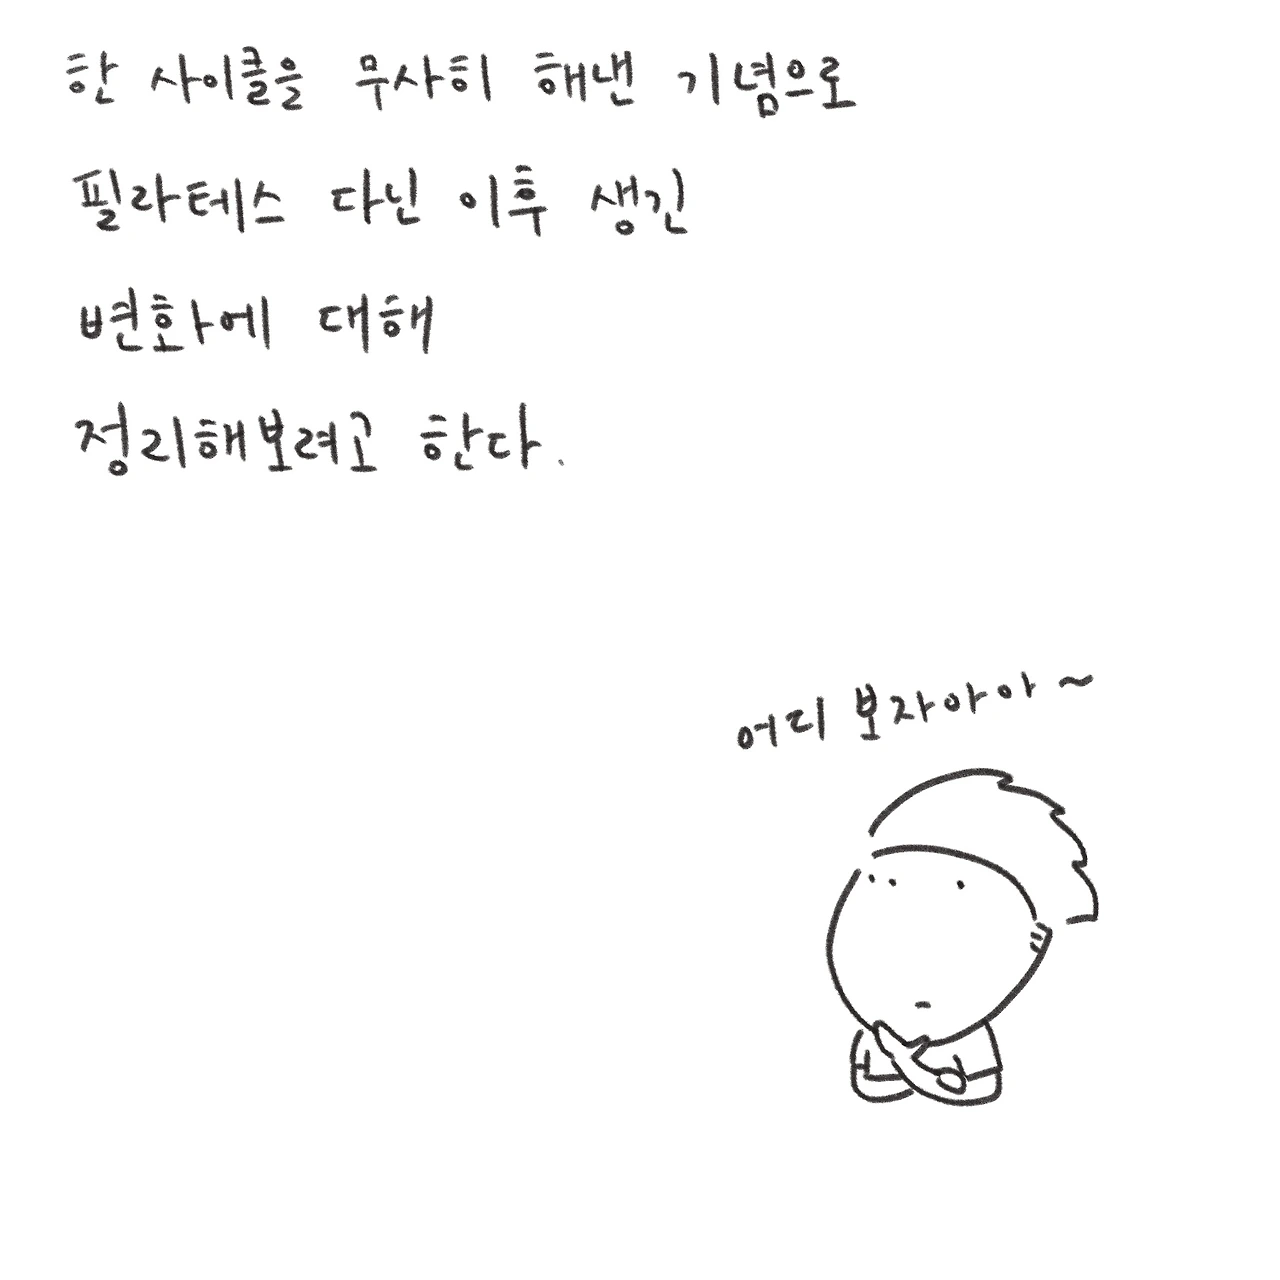 한 사이클을 무사히 해낸 기념으로
필라테스 다닌 이후 생긴
변화에 대해
정리해보려고 한다.
어디 보자아아~